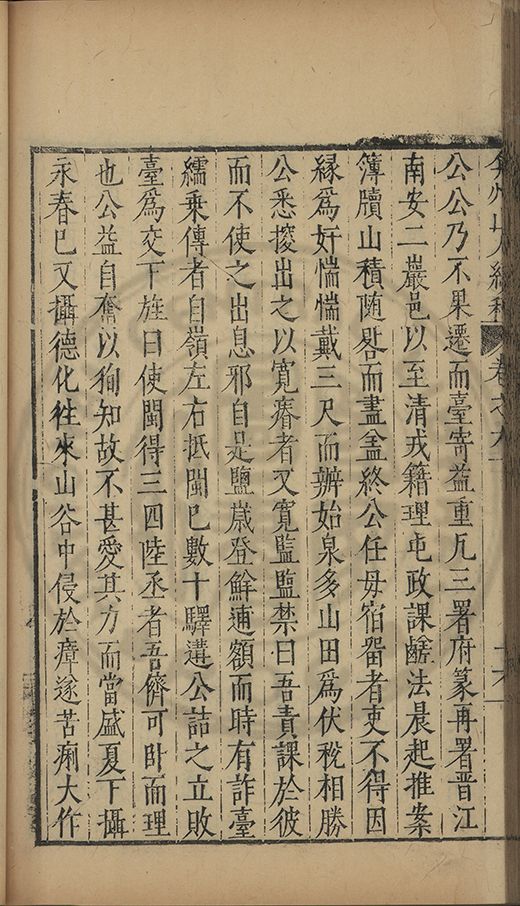 弇州山人續稿 卷之九十
公公乃不果遷而臺寄益重凡三署府篆再署晉江
南安二巖邑以至清戎籍理屯政課鹺法晨起推案
簿牘山積随晷而盡盇終公任毋宿畱者吏不得因
縁爲奸惴惴戴三尺而辦始泉多山田爲伏稅相勝
公悉擿出之以寛瘠者又寛監監禁曰吾責課於彼
而不使之出息邪自是鹽歲登鮮逋額而時有詐臺
繻乗傳者自嶺左右抵閩已數十驛遘公詰之立敗
臺爲交下旌曰使閩得三四陸丞者吾儕可卧而理
也公益自奮以狥知故不甚愛其力而當盛夏下攝
永春已又攝德化徃來山谷中侵於瘴遂苦痢大作